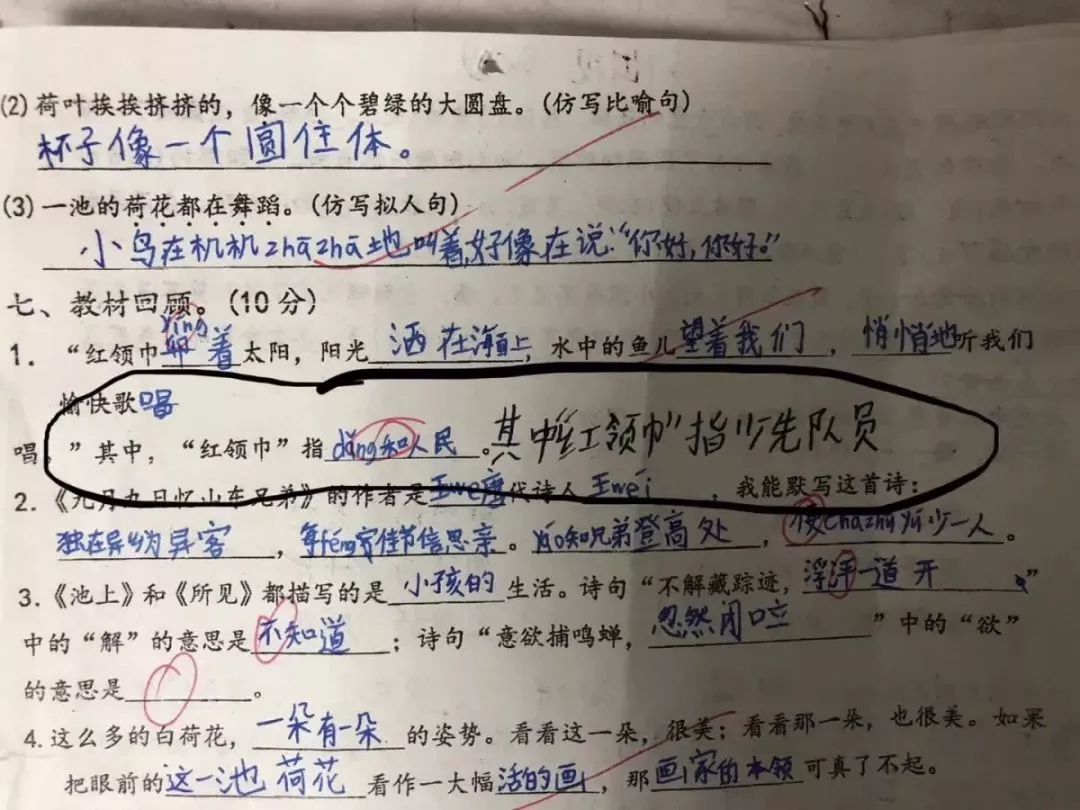 (2) 荷叶挨挨挤挤的，像一个个碧绿的大圆盘。(仿写比喻句)
杯子像一个圆住体。
(3) 一池的荷花都在舞蹈。(仿写拟人句)
小鸟在机机zhāzhā地叫着,好像在说:“你好,你好。”
七、教材回顾。(10分)
yíng
1. “红领巾 着太阳，阳光洒在海面上，水中的鱼儿望着我们，悄悄地听我们
愉快歌唱
唱。”其中，“红领巾”指dǎng和人民。其中“红领巾”指少先队员
2.《九月九日忆山东兄弟》的作者是唐代诗人王wéi，我能默写这首诗：
独在异乡为异客，每féng家佳节倍思亲。yáo知兄弟登高处，chāzhūyú少一人。
3.《池上》和《所见》都描写的是小孩的生活。诗句“不解藏踪迹，浮萍一道开”
中的“解”的意思是不知道；诗句“意欲捕鸣蝉，忽然闭口立”中的“欲”
的意思是。
4. 这么多的白荷花，一朵有一朵的姿势。看看这一朵，很美；看看那一朵，也很美。如果
把眼前的这一池荷花看作一大幅活的画，那画家的本领可真了不起。